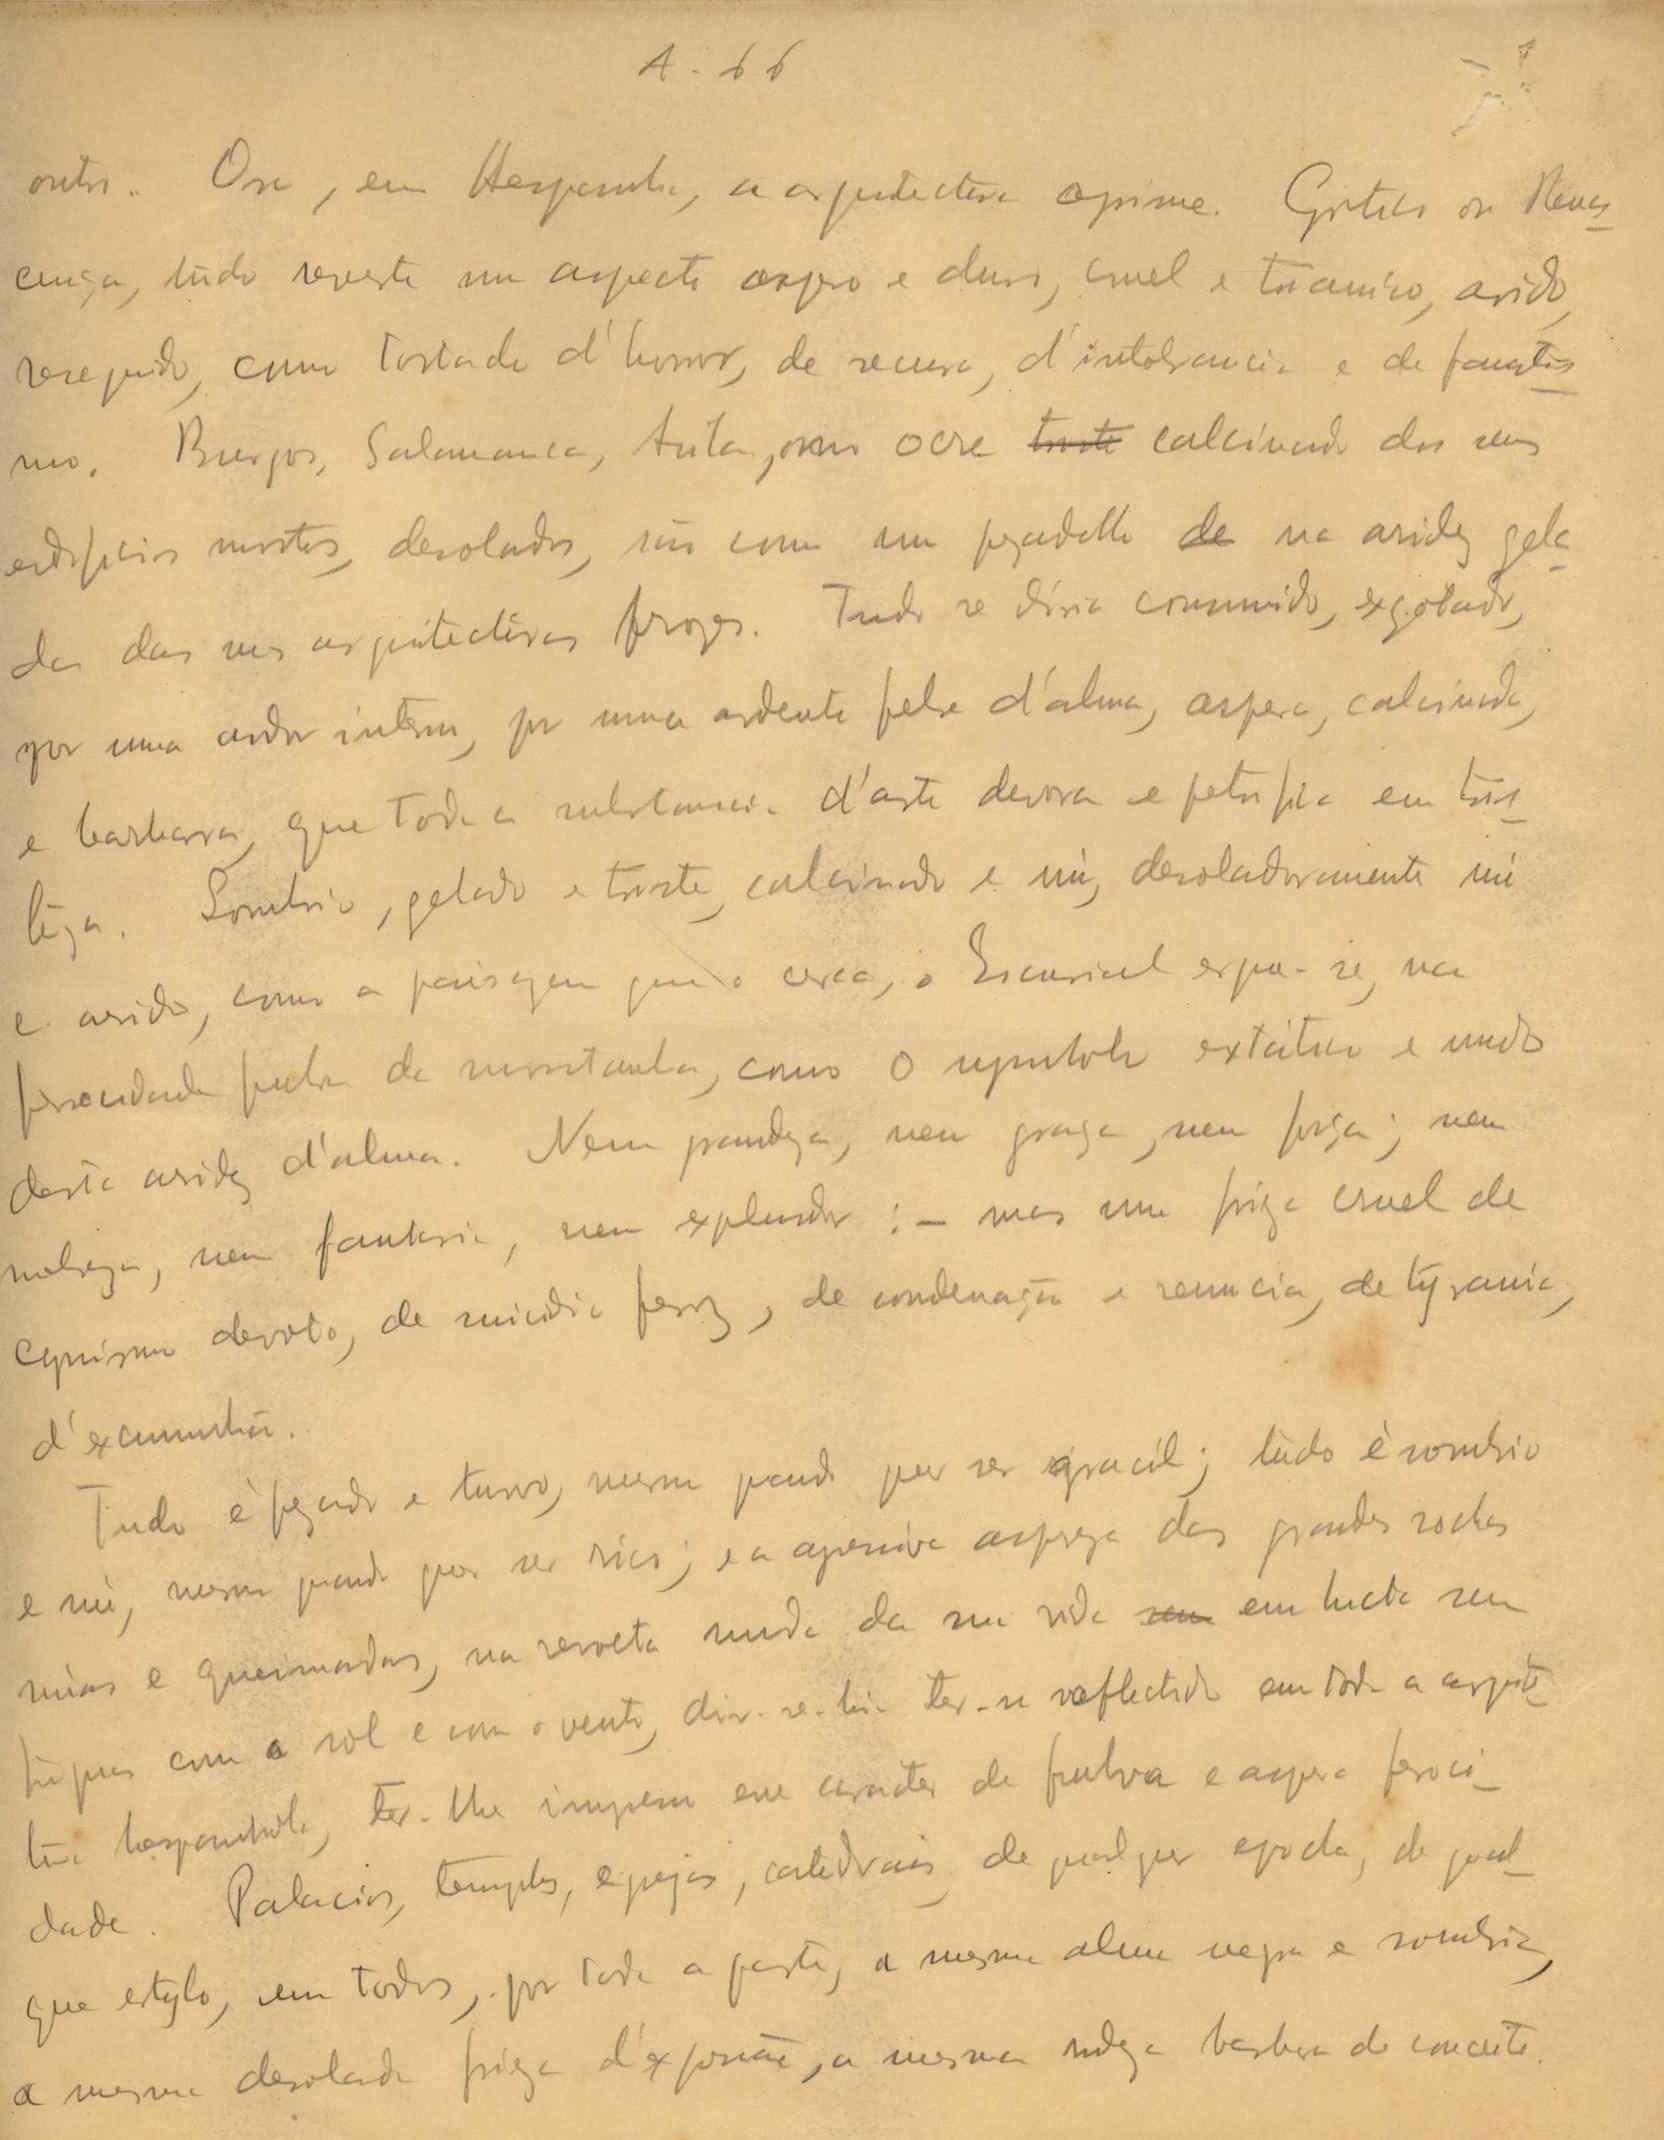 A. 66
outro. Ora, em Hespanha, a arquitectura oprime. Gotica ou Renas
cença, tudo reveste um aspecto aspero e duro, cruel e tyranico, arido,
resequido, como tostado d'horror, de secura, d'intolerancia e de fanatis
mo. Burgos, Salamanca, Avila, ocre triste calcinado dos seus
edificios mortos, desolados, são como um pezadello de na aridez gela
da das suas arquitecturas ferozes. Tudo se diria consumido, exgotado,
por uma ardor interno, por uma ardente febre d'alma, aspera, calcinada,
e barbara, que toda a substancia d'arte devora e petrifica em tris
teza. Sombrio, gelado e triste, calcinado e nú, desoladoramente nú
e arido, como a paisagem que o cerca, o Escurial ergue-se, na
ferocidade fulva da montanha, como o symbolo extático e mudo
desta aridez d'alma. Nem grandeza, nem graça, nem força; nem
nobreza, nem fantasia, nem explendor : – mas uma frieza cruel de
cynismo devoto, de suicidio feroz, de condenação e renuncia, de tyrania,
d'excomunhão.
Tudo é pezado e turvo, mesmo quando quer ser grácil; tudo é sombrio
e nú, mesmo quando quer ser rico; e a opressiva aspreza das grandes rochas
núas e queimadas, na revolta muda da sua vida sem em lucta sem
tréguas com o sol e com o vento, dir-se-hia ter-se reflectido em toda a arquite
tura hespanhola, ter-lhe imposto esse caracter de fulva e aspera feroci-
dade. Palacios, templos, egrejas, catedrais, de qualquer epocha, de qual-
que estylo, em todos, por toda a parte, a mesma alma negra e sombria,
a mesma desolada frieza d'expressão, a mesma rudeza barbara de conceito.